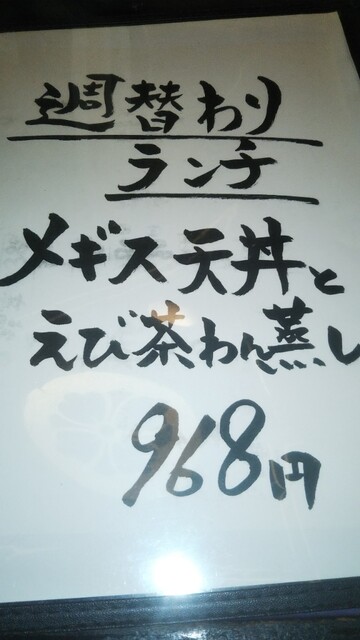 週替わり
ランチ
メギス天丼と
えび茶わん蒸し
968円